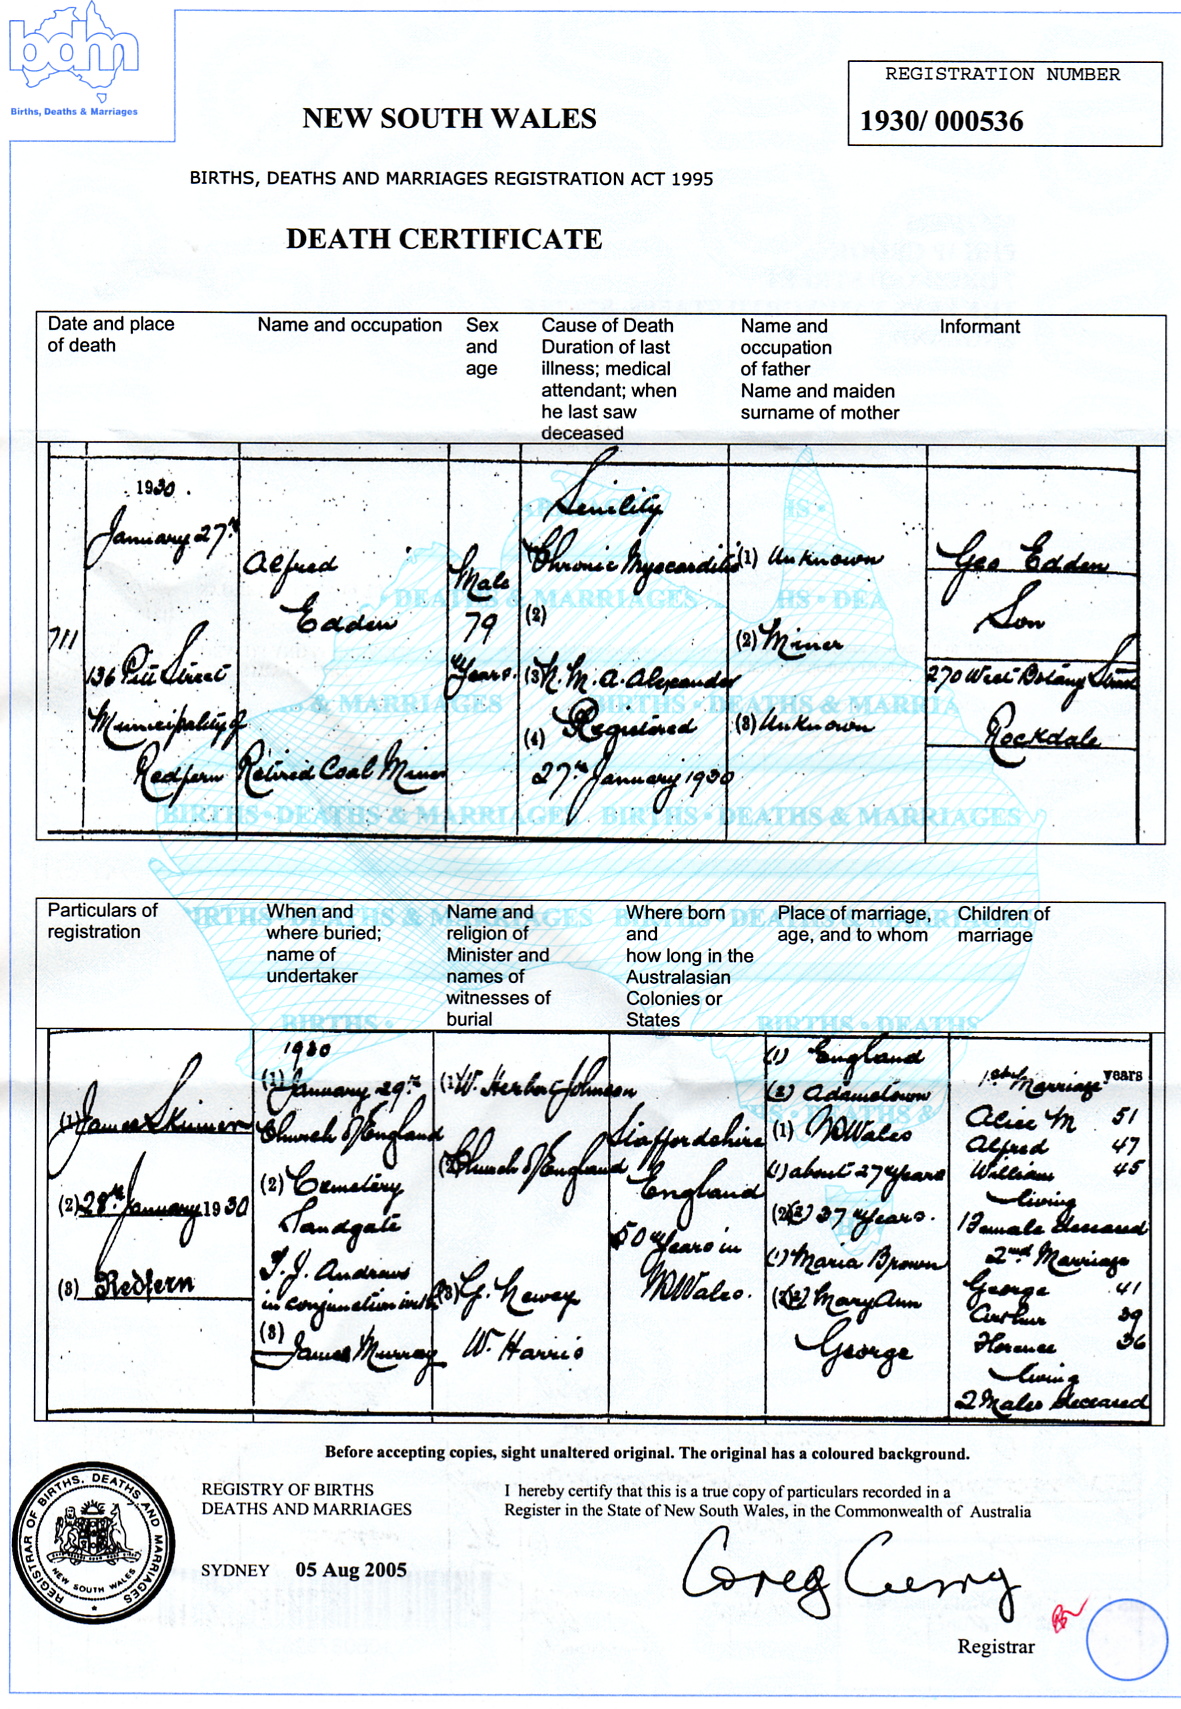 bdm
Births, Deaths & Marriages
REGISTRATION NUMBER
1930/ 000536
NEW SOUTH WALES
BIRTHS, DEATHS AND MARRIAGES REGISTRATION ACT 1995
DEATH CERTIFICATE
Date and place
of death
Name and occupation
Sex
and
age
Cause of Death
Duration of last
illness; medical
attendant; when
he last saw
deceased
Name and
occupation
of father
Name and maiden
surname of mother
Informant
711
1930.
January 27th
136 Pitt Street
Municipality of
Redfern
Alfred
Edden
Retired Coal Miner
Male
79
Years.
Senility
Chronic Myocarditis
(2)
(3) N. M. A. Alexander
(4) Registered
27th January 1930
(1) Unknown
(2) Miner
(3) Unknown
Geo Edden
Son
270 West Botany Street
Rockdale
Particulars of
registration
When and
where buried;
name of
undertaker
Name and
religion of
Minister and
names of
witnesses of
burial
Where born
and
how long in the
Australasian
Colonies or
States
Place of marriage,
age, and to whom
Children of
marriage
(1) James Skinner
(2) 28th January 1930
(3) Redfern
1930
(1) January 29th
Church of England
(2) Cemetery
Sandgate
T. J. Andrews
in conjunction with
(3)
James Murray
(1) W. Herbert Johnson
(2) Church of England
(3) G. Newey
W. Harris
Staffordshire
England
50 Years in
N S Wales.
(1) England
(2) Adamstown
(1) N S Wales
(1) about 27 Years
(2) 37 Years.
(1) Maria Brown
(2) Mary Ann
George
1st Marriage years
Alice M 51
Alfred 47
William 45
living
1 Female deceased
2nd Marriage
George 41
Arthur 39
Florence 36
living
2 Males deceased
Before accepting copies, sight unaltered original. The original has a coloured background.
REGISTRAR OF BIRTHS, DEATHS AND MARRIAGES
NEW SOUTH WALES
REGISTRY OF BIRTHS
DEATHS AND MARRIAGES
SYDNEY 05 Aug 2005
I hereby certify that this is a true copy of particulars recorded in a
Register in the State of New South Wales, in the Commonwealth of Australia
Greg Curry
Registrar